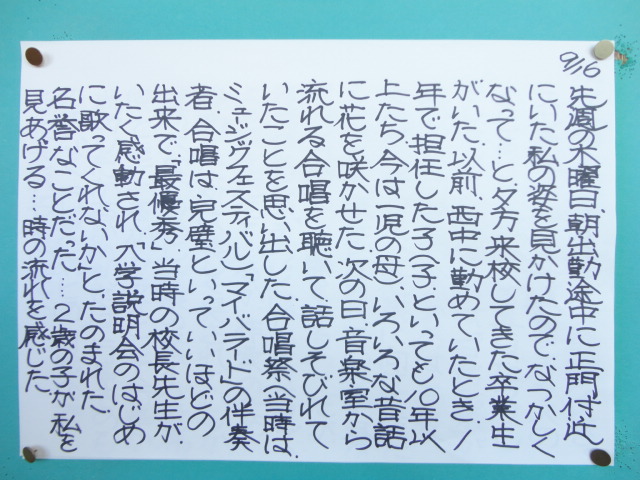 9/16
先週の木曜日、朝出勤途中に正門付近
にいた私の姿を見かけたので、なつかしく
なって…と夕方来校してきた卒業生
がいた。以前、西中に勤めていたとき、1
年で担任した子(子といっても10年以
上たち、今は一児の母)、いろいろな昔話
に花を咲かせた。次の日、音楽室から
流れる合唱を聴いて、話しそびれて
いたことを思い出した。合唱祭(当時は、
ミュージックフェスティバル)「マイバラード」の伴奏
者、合唱は、完璧といっていいほどの
出来で、「最優秀」、当時の校長先生が、
いたく感動され、「入学説明会のはじめ
に歌ってくれないか」と、たのまれた。
名誉なことだった…。2歳の子が私を
見あげる…時の流れを感じた。